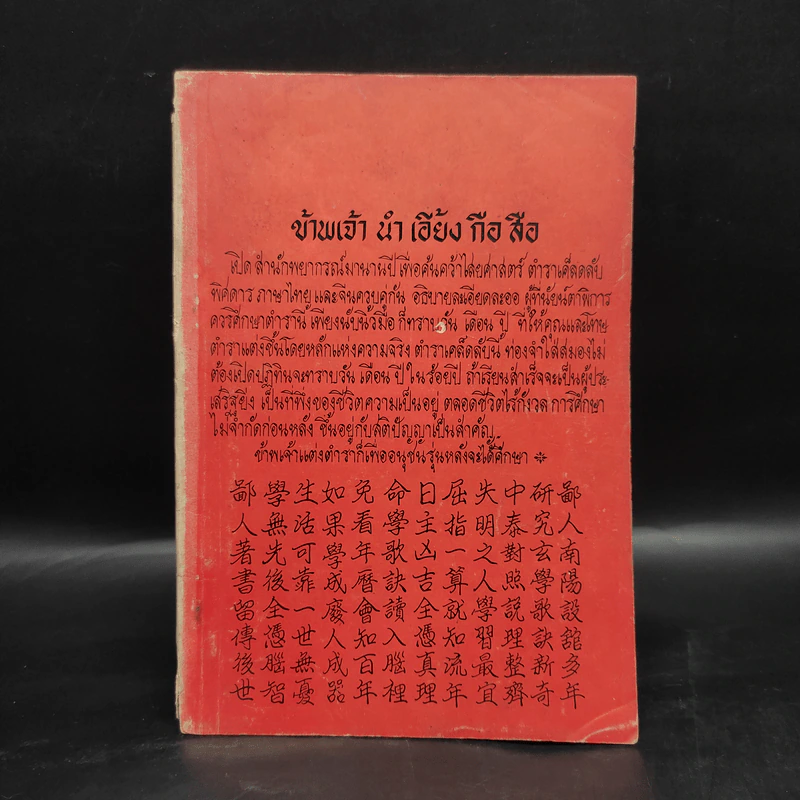 ข้าพเจ้า นำ เอี้ยง กือ สือ
เปิด สำนักพยากรณ์มานานปี เพื่อค้นคว้าไสยศาสตร์ ตำราเคล็ดลับ
พิศดาร ภาษาไทย และจีนควบคู่กัน อธิบายละเอียดละออ ผู้ที่นัยน์ตาพิการ
ควรศึกษาตำรานี้ เพียงนับนิ้วมือ ก็ทราบวัน เดือน ปี ที่ให้คุณและโทษ
ตำราแต่งขึ้นโดยหลักแห่งความจริง ตำราเคล็ดลับนี้ ท่องจำใส่สมองไม่
ต้องเปิดปฏิทินจะทราบวัน เดือน ปี ในร้อยปี ถ้าเรียนสำเร็จจะเป็นผู้ประ
เสริฐยิ่ง เป็นที่พึ่งของชีวิตความเป็นอยู่ ตลอดชีวิตไร้กังวล การศึกษา
ไม่จำกัดก่อนหลัง ขึ้นอยู่กับสติปัญญาเป็นสำคัญ
ข้าพเจ้าแต่งตำราก็เพื่ออนุชนรุ่นหลังจะได้ศึกษา
鄙人南陽設舘多年
研究玄學歌訣新奇
中泰對照說理整齊
失明之人學習最宜
屈指一算就知流年
日主凶吉全憑真理
命學歌訣讀入腦裡
免看年曆會知百年
如果學成廢人成器
生活可靠一世無憂
學無先後全憑腦智
鄙人著書留傳後世